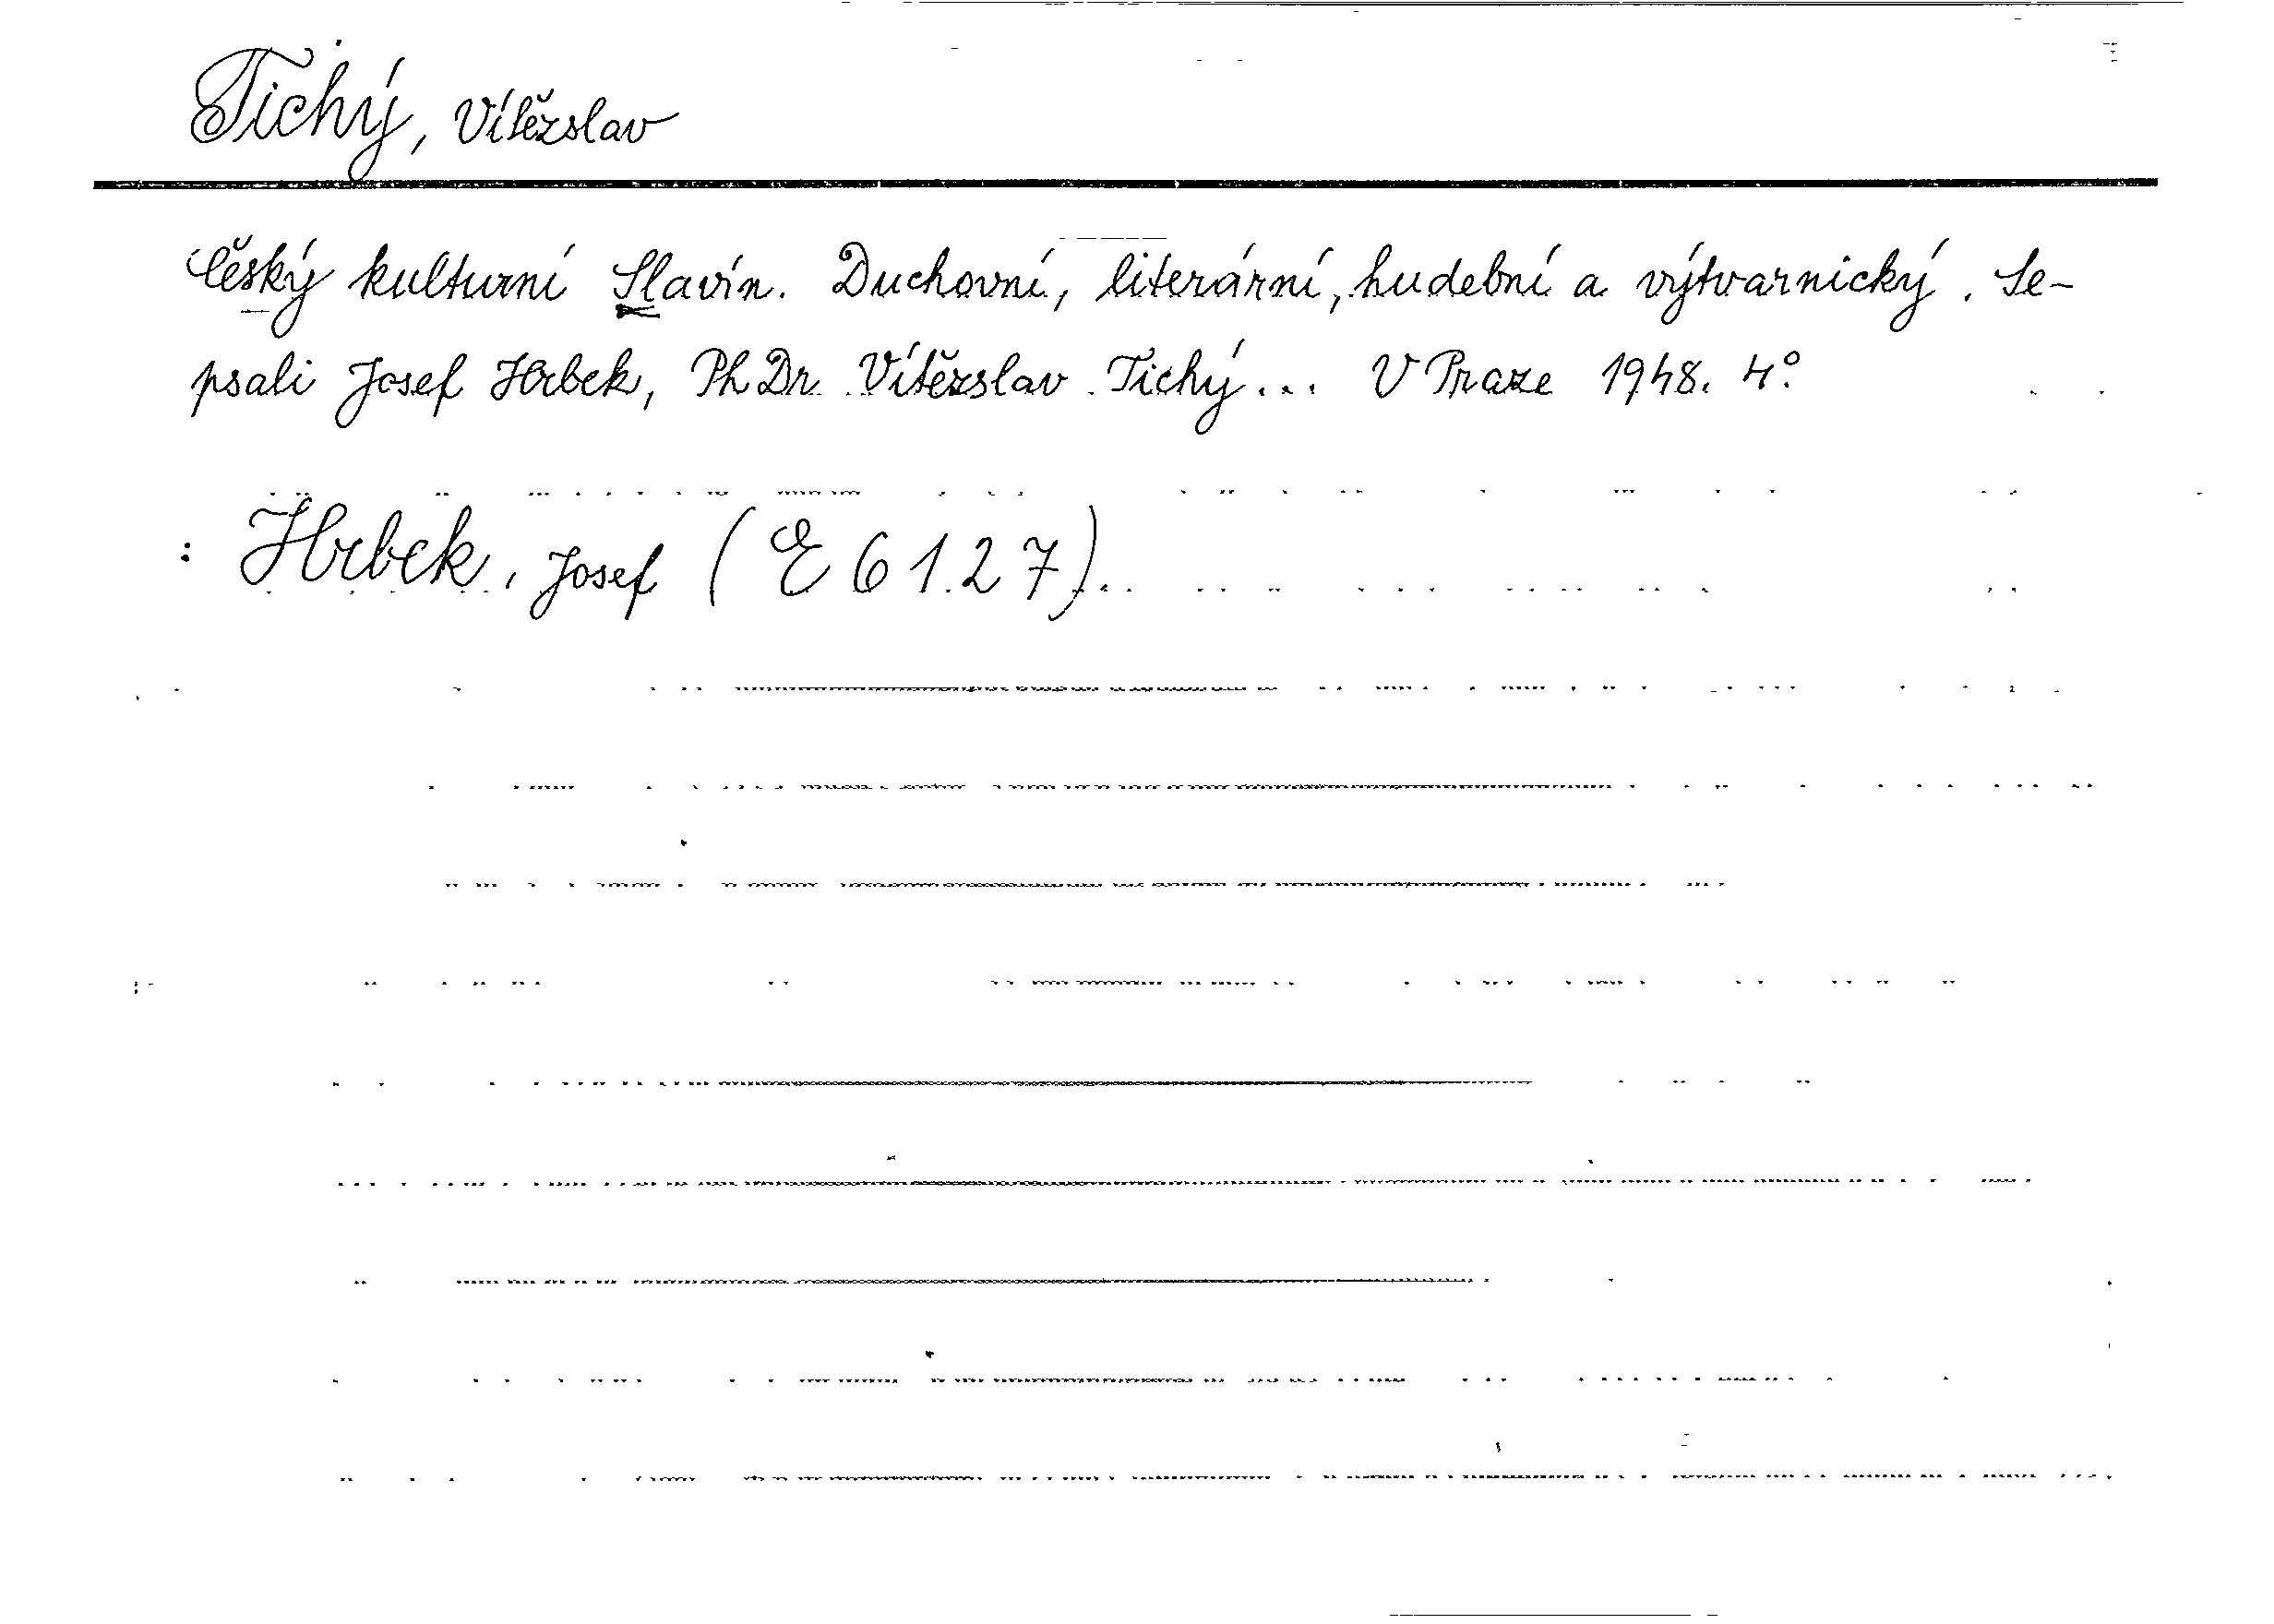 Tichý, Vítězslav
Český kulturní Slavín. Duchovní, literární, hudební a výtvarnický. Se-
psali Josef Hrbek, PhDr. Vítězslav Tichý... V Praze 1948. 4°
: Hrbek, Josef (E 61.27).